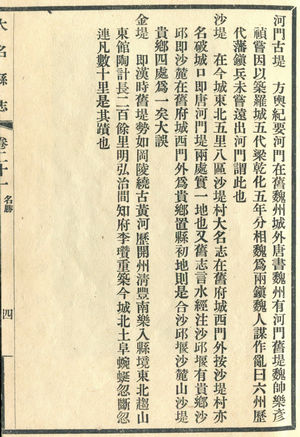 河門古堤　方輿紀要河門在舊魏州城外唐書魏州有河門舊堤魏帥樂彥
禎嘗因以築羅城五代梁乾化五年分相魏爲兩鎮魏人謀作亂曰六州歷
代藩鎮兵未嘗遠出河門謂此也
沙堤　在今城東北五里八區沙堤村大名志在舊府城西門外按沙堤村亦
名破城口即唐河門堤兩處實一地也又舊志言水經注沙邱堰有貴鄉沙
邱即沙麓在舊府城西門外爲貴鄉置縣初地則是合沙邱堰沙麓山沙堤
貴鄉四處爲一矣大誤
金堤　即漢時舊堤勢如岡陵繞古黃河歷開州清豐南樂入縣境東北趨山
東館陶計長二百餘里明弘治間知府李瓚重築今城北土阜蜿蜒忽斷忽
連凡數十里是其蹟也
大名縣志
卷二十一
名勝
四